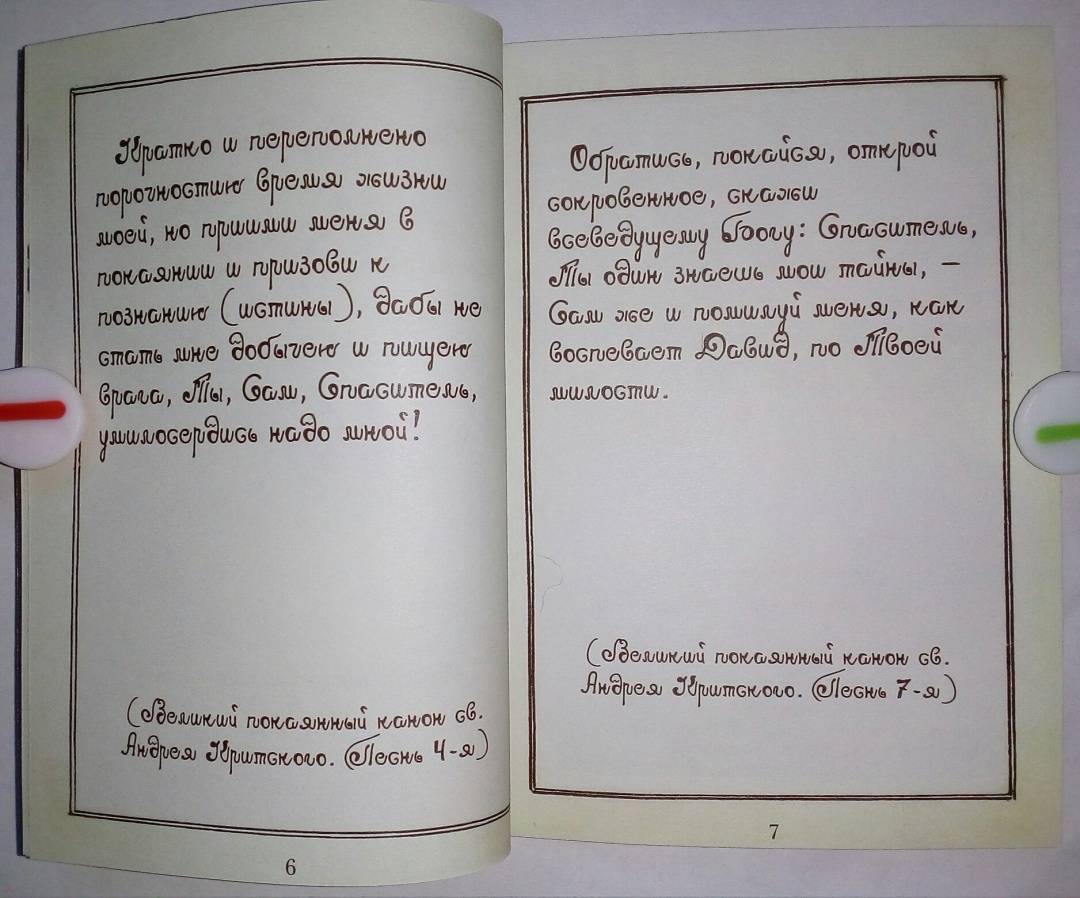 Кратко и переполнено
порочностию время жизни
моей, но приими меня в
покаянии и призови к
познанию (истины), дабы не
стать мне добычею и пищею
врага, Ты, Сам, Спаситель,
умилосердись надо мной!
(Великий покаянный канон св.
Андрея Критского. (Песнь 4-я)
6
Обратись, покайся, открой
сокровенное, скажи
всеведущему Богу: Спаситель,
Ты один знаешь мои тайны, –
Сам же и помилуй меня, как
воспевает Давид, по Твоей
милости.
(Великий покаянный канон св.
Андрея Критского. (Песнь 7-я)
7